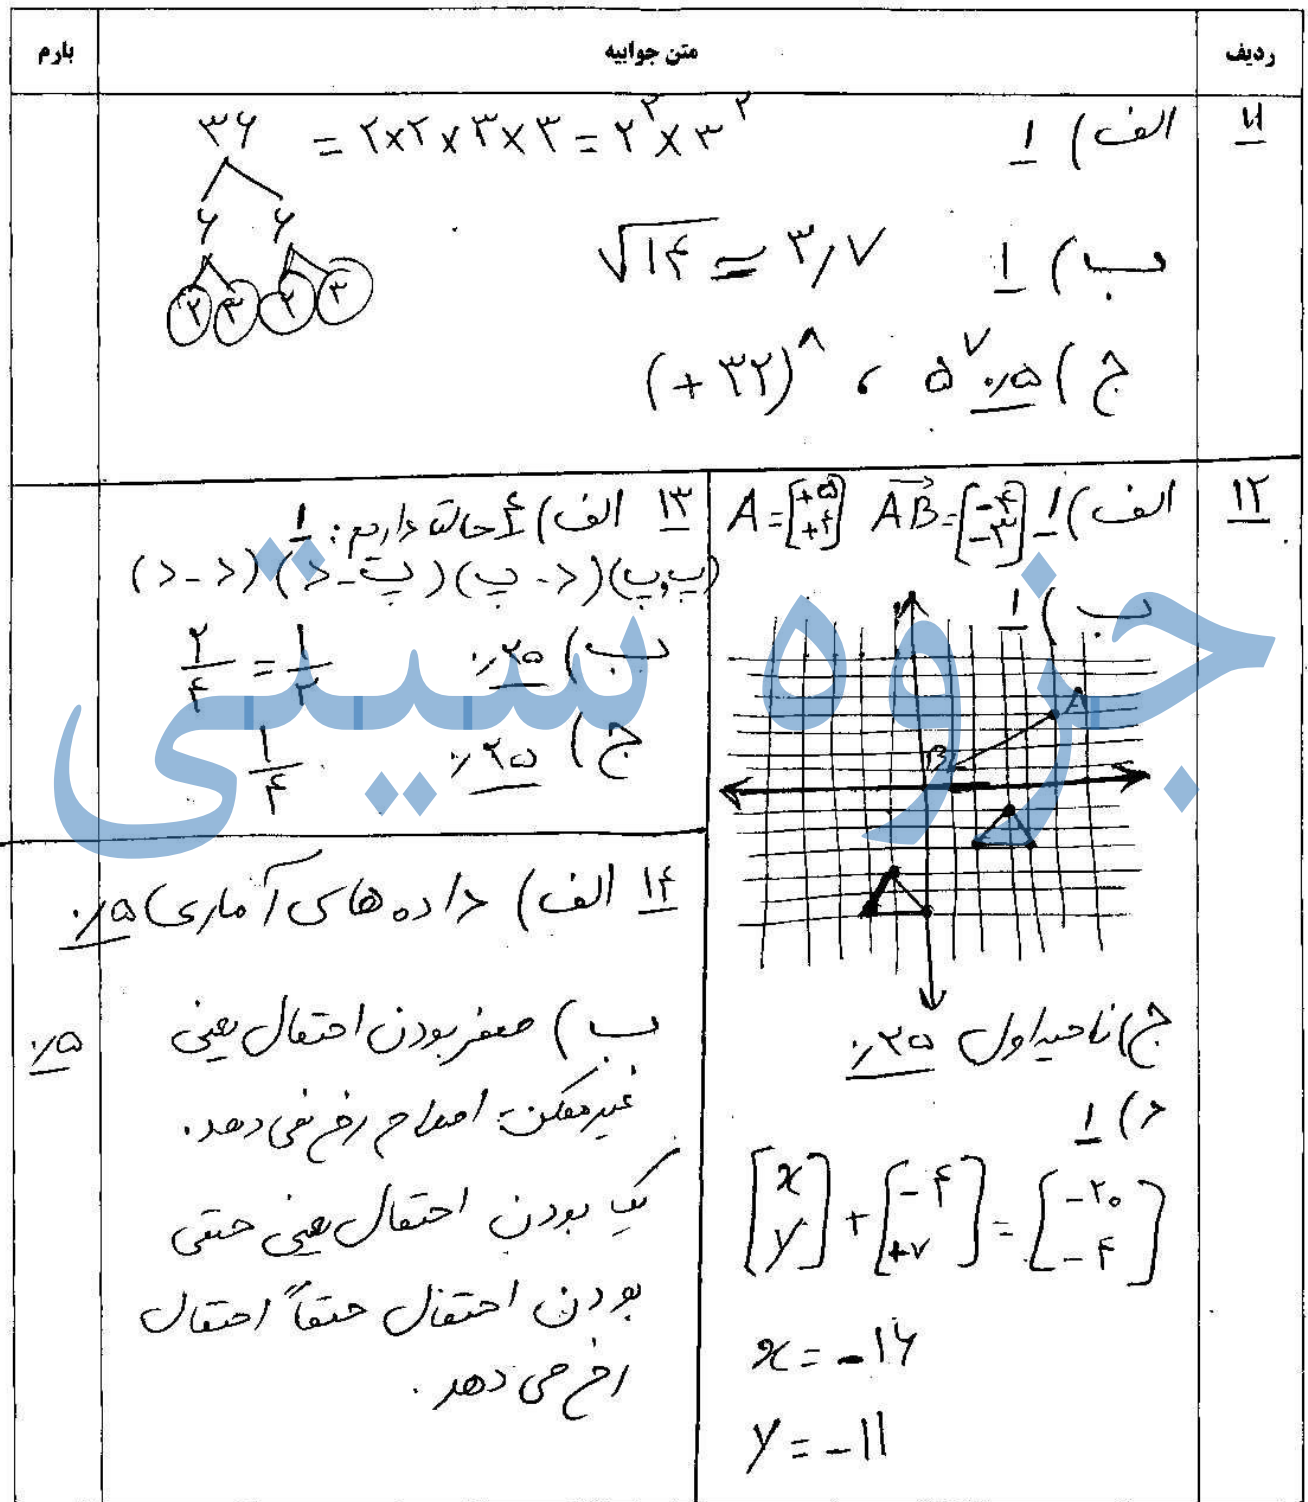 ردیف متن جوابیه بارم
۱۱ الف) ۱ ۳۶ = ۲×۲×۳×۳ = ۲^۲ × ۳^۲
۶ ۶
۲ ۳ ۲ ۳
ب) ۱ √۱۴ ≃ ۳/۷
ج) ۰/۵ ۵^۷ ، (+۳۲)^۸
۱۲ الف) ۱ AB = [-۴ -۳] A = [+۵ +۴]
ب) ۱
A
B
ج) ناحیه اول ۰/۲۵
د) ۱
[x y] + [-۴ +۷] = [-۲۰ -۴]
x = -۱۶
y = -۱۱
۱۳ الف) ۴ حالت داریم: ۱
(پ,پ) (د-پ) (پ-د) (د-د)
ب) ۰/۲۵ ۲/۴ = ۱/۲
ج) ۰/۲۵ ۱/۴
۱۴ الف) داده های آماری ۰/۵
ب) صفر بودن احتمال یعنی ۰/۵
غیرممکن رخ نمی دهد.
یک بودن احتمال یعنی حتمی
بودن احتمال حتماً احتمال
رخ می دهد.
جزوه سیتی